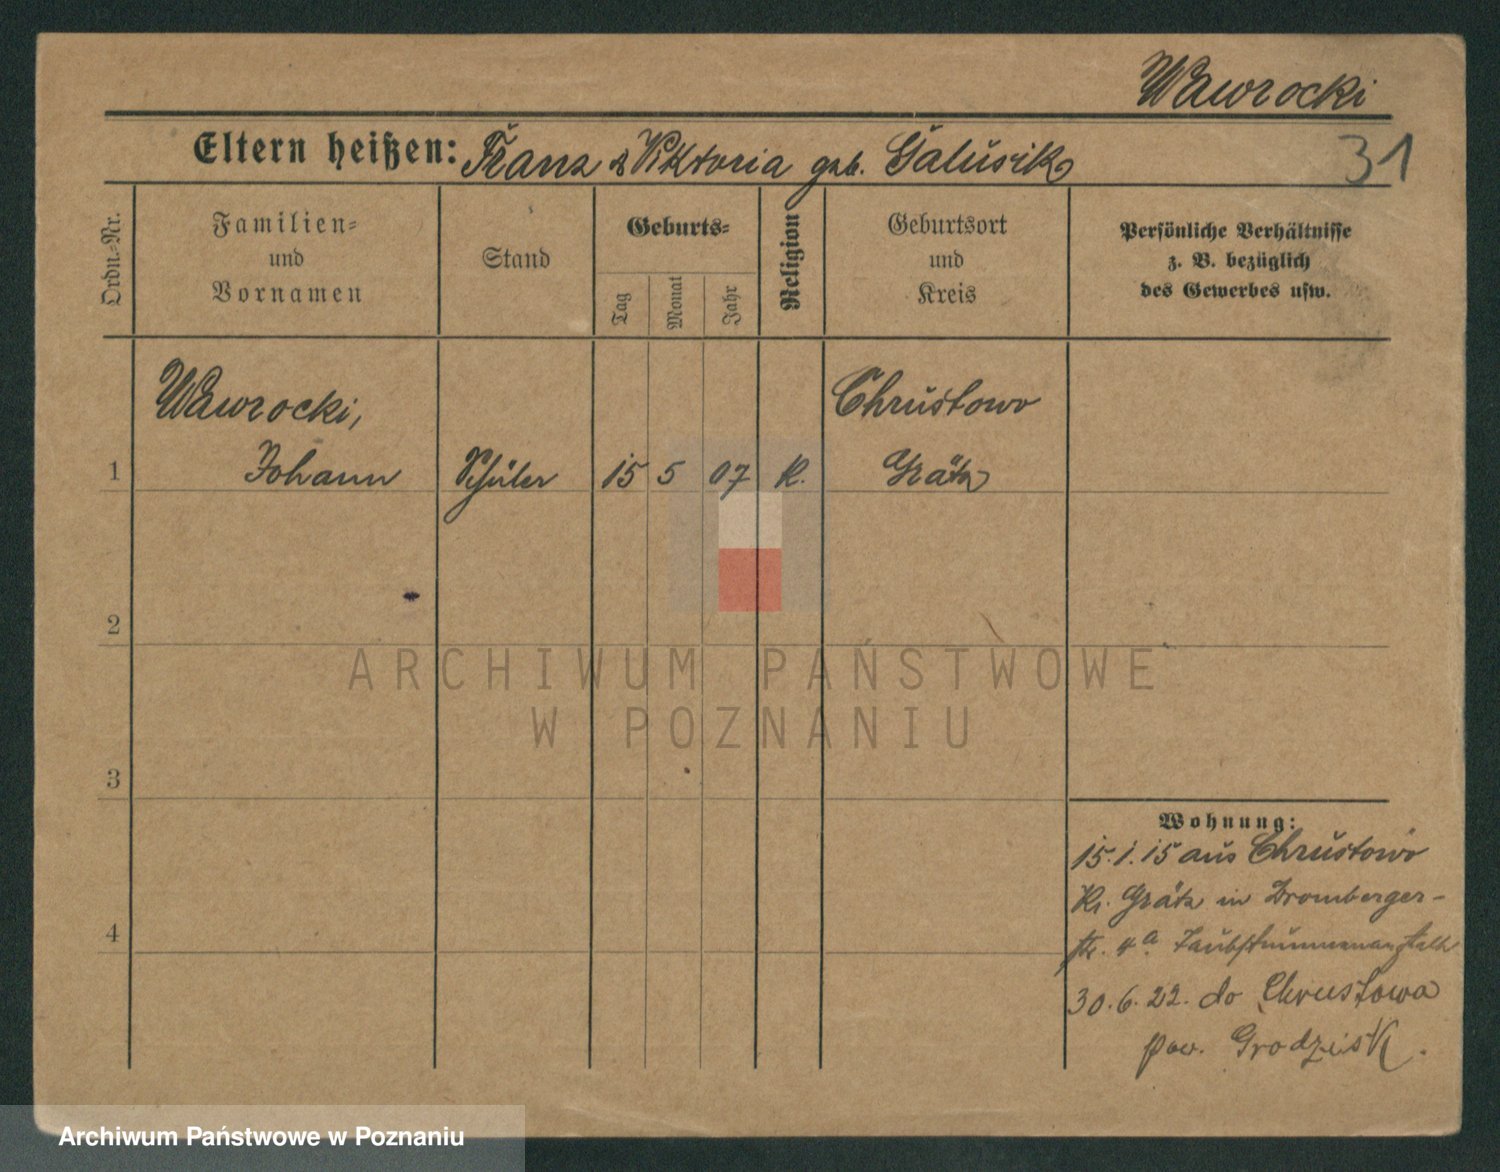 Wawrocki
Eltern heißen: Franz & Viktoria geb. Galusik
31
Ordn.-Nr.
Familien-
und
Vornamen
Stand
Geburts-
Tag
Monat
Jahr
Religion
Geburtsort
und
Kreis
Persönliche Verhältnisse
z. B. bezüglich
des Gewerbes usw.
Wawrocki,
Chrustowo
1 Johann Schüler 15 5 07 K. Grätz
2
ARCHIWUM PAŃSTWOWE
W POZNANIU
3
Wohnung:
15.1.15 aus Chrustowo
Kr. Grätz in Bromberger-
4
str. 4a Taubstummenanstalt
30.6.22. do Chrustowa
pow. Grodzisk.
Archiwum Państwowe w Poznaniu